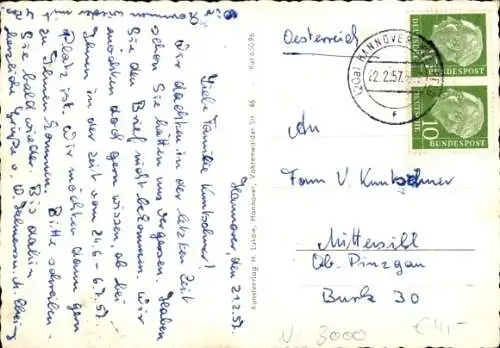 Hannover den 21.2.57.
Liebe Familie Kuntschner!
Wir dachten in der letzten Zeit
schon Sie hätten uns vergessen. Haben
Sie den Brief nicht bekommen. Wir
möchten doch gern wissen ob bei
Ihnen in der Zeit vom 24.6-6.7.57.
Platz ist. Wir möchten dann gern
zu Ihnen kommen. Bitte schreiben
Sie bald wieder. Bis dahin
herzliche Grüße
Kunstverlag H. Lukow, Hannover, Vahrenwalder Str. 46
Ruf 6 50 96
Oesterreich
HANNOVER
(20a)
22.2.57.
f
DEUTSCHE
BUNDESPOST
10
DEUTSCHE
BUNDESPOST
An
Fam V. Kuntschner
Mittersill
Ob. Pinzgau
Burk 30
N. 3000
€4,-